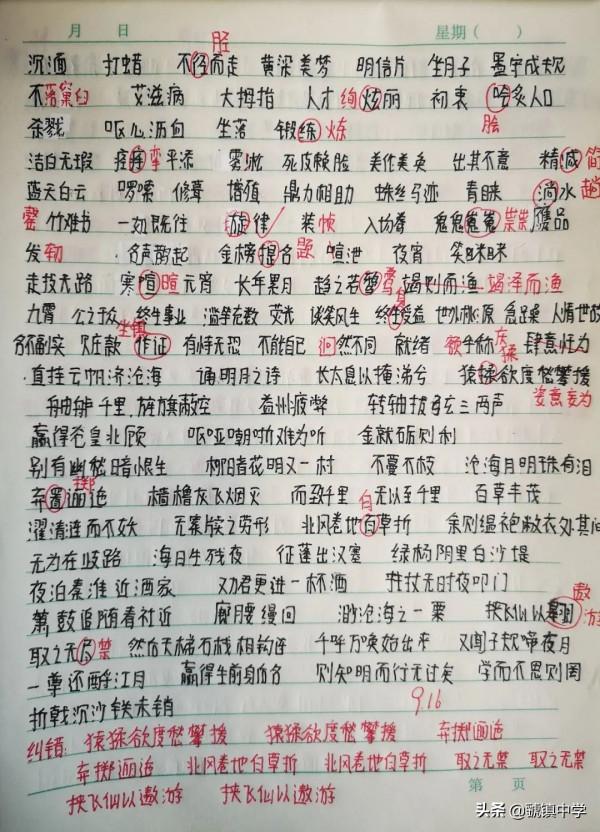 月 日 星期( )
胫
沉湎 打蜡 不径而走 黄梁美梦 明信片 坐月子 墨守成规
不落窠臼 艾滋病 大拇指 人才 绚炫丽 初衷 哈炙人口
杀戮 呕心沥血 坐落 锻练 炼 脍
洁白无瑕 挛 平添 雾凇 死皮赖脸 美仑美奂 出其不意 精减 简
蓝天白云 啰嗦 修葺 增殖 鼎力相助 蛛丝马迹 青睐 淌水 趟
罄竹难书 一如既往 旋律 装帧 入场券 鬼鬼 祟祟 赝品
发轫 名声鹊起 金榜提名 题 宣泄 夜宵 笑眯眯
走投无路 寒喧 暄 元宵 长年累月 趋之若 鹜 竭则而渔 竭泽而渔
九霄 公之于众 终生事业 滥竽充数 荧光 谈笑风生 终生受益 身 世外桃源 急躁 人情世故
坐镇
名不副实 赃款 作证 有恃无恐 不能自已 迥然不同 就绪 额手称庆 肆意妄为
直挂云帆济沧海 诵明月之诗 长太息以掩涕兮 猿猱欲度愁攀援
猱
恣意妄为
舳舻千里,旌旗蔽空 益州疲弊 转轴拨弦三两声
赢得仓皇北顾 呕哑嘲哳难为听 金就砺则利
别有幽愁暗恨生 柳暗花明又一村 不蔓不枝 沧海月明珠有泪
掷
弃置逦迤 樯橹灰飞烟灭 而致千里 无以至千里 百草丰茂
白
濯清涟而不妖 无案牍之劳形 北风卷地百草折 余则缊袍敝衣处其间
无为在歧路 海日生残夜 征蓬出汉塞 绿杨阴里白沙堤
夜泊秦淮近酒家 劝君更进一杯酒 拄杖无时夜叩门
遨
箫鼓追随春社近 廊腰缦回 渺沧海之一粟 挟飞仙以翱游
取之无尽 禁 然后天梯石栈相钩连 千呼万唤始出来 又闻子规啼夜月
一尊还酹江月 赢得生前身后名 则知明而行无过矣 学而不思则罔
折戟沉沙铁未销 9.16
纠错: 猿猱欲度愁攀援 猿猱欲度愁攀援 弃掷逦迤
弃掷逦迤 北风卷地白草折 北风卷地白草折 取之无禁 取之无禁
挟飞仙以遨游 挟飞仙以遨游
第 页
头条 @虢镇中学